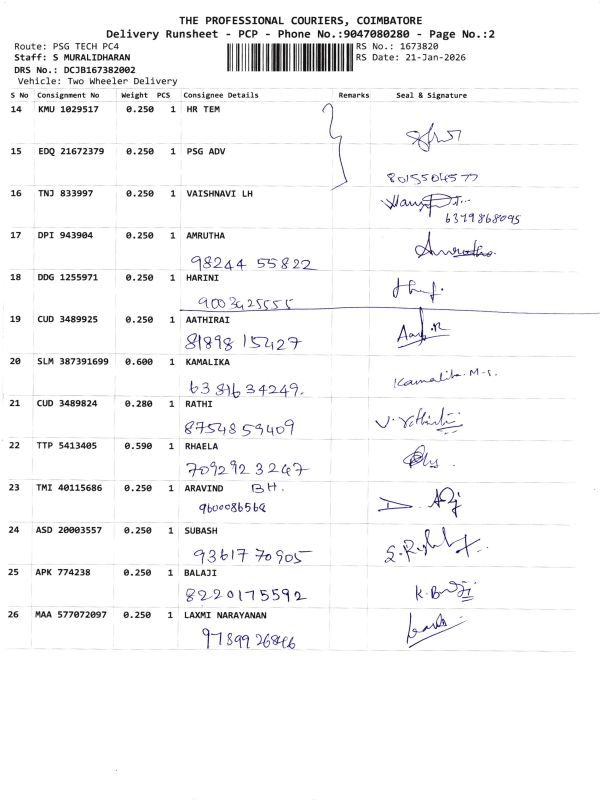 THE PROFESSIONAL COURIERS, COIMBATORE
Delivery Runsheet - PCP - Phone No.:9047080280 - Page No.:2
Route: PSG TECH PC4 RS No.: 1673820
Staff: S MURALIDHARAN RS Date: 21-Jan-2026
DRS No.: DCJB167382002
Vehicle: Two Wheeler Delivery
S No Consignment No Weight PCS Consignee Details Remarks Seal & Signature
14 KMU 1029517 0.250 1 HR TEM
15 EDQ 21672379 0.250 1 PSG ADV
8015504577
16 TNJ 833997 0.250 1 VAISHNAVI LH
6379868095
17 DPI 943904 0.250 1 AMRUTHA
98244 55822
18 DDG 1255971 0.250 1 HARINI
9003425555
19 CUD 3489925 0.250 1 AATHIRAI
81898 15427
20 SLM 387391699 0.600 1 KAMALIKA
Kamalika. M-S.
6381634249.
21 CUD 3489824 0.280 1 RATHI
8754859409
22 TTP 5413405 0.590 1 RHAELA
7092923247
23 TMI 40115686 0.250 1 ARAVIND BH.
9600086568
24 ASD 20003557 0.250 1 SUBASH
93617 70905
25 APK 774238 0.250 1 BALAJI
8220175592
26 MAA 577072097 0.250 1 LAXMI NARAYANAN
9789926846